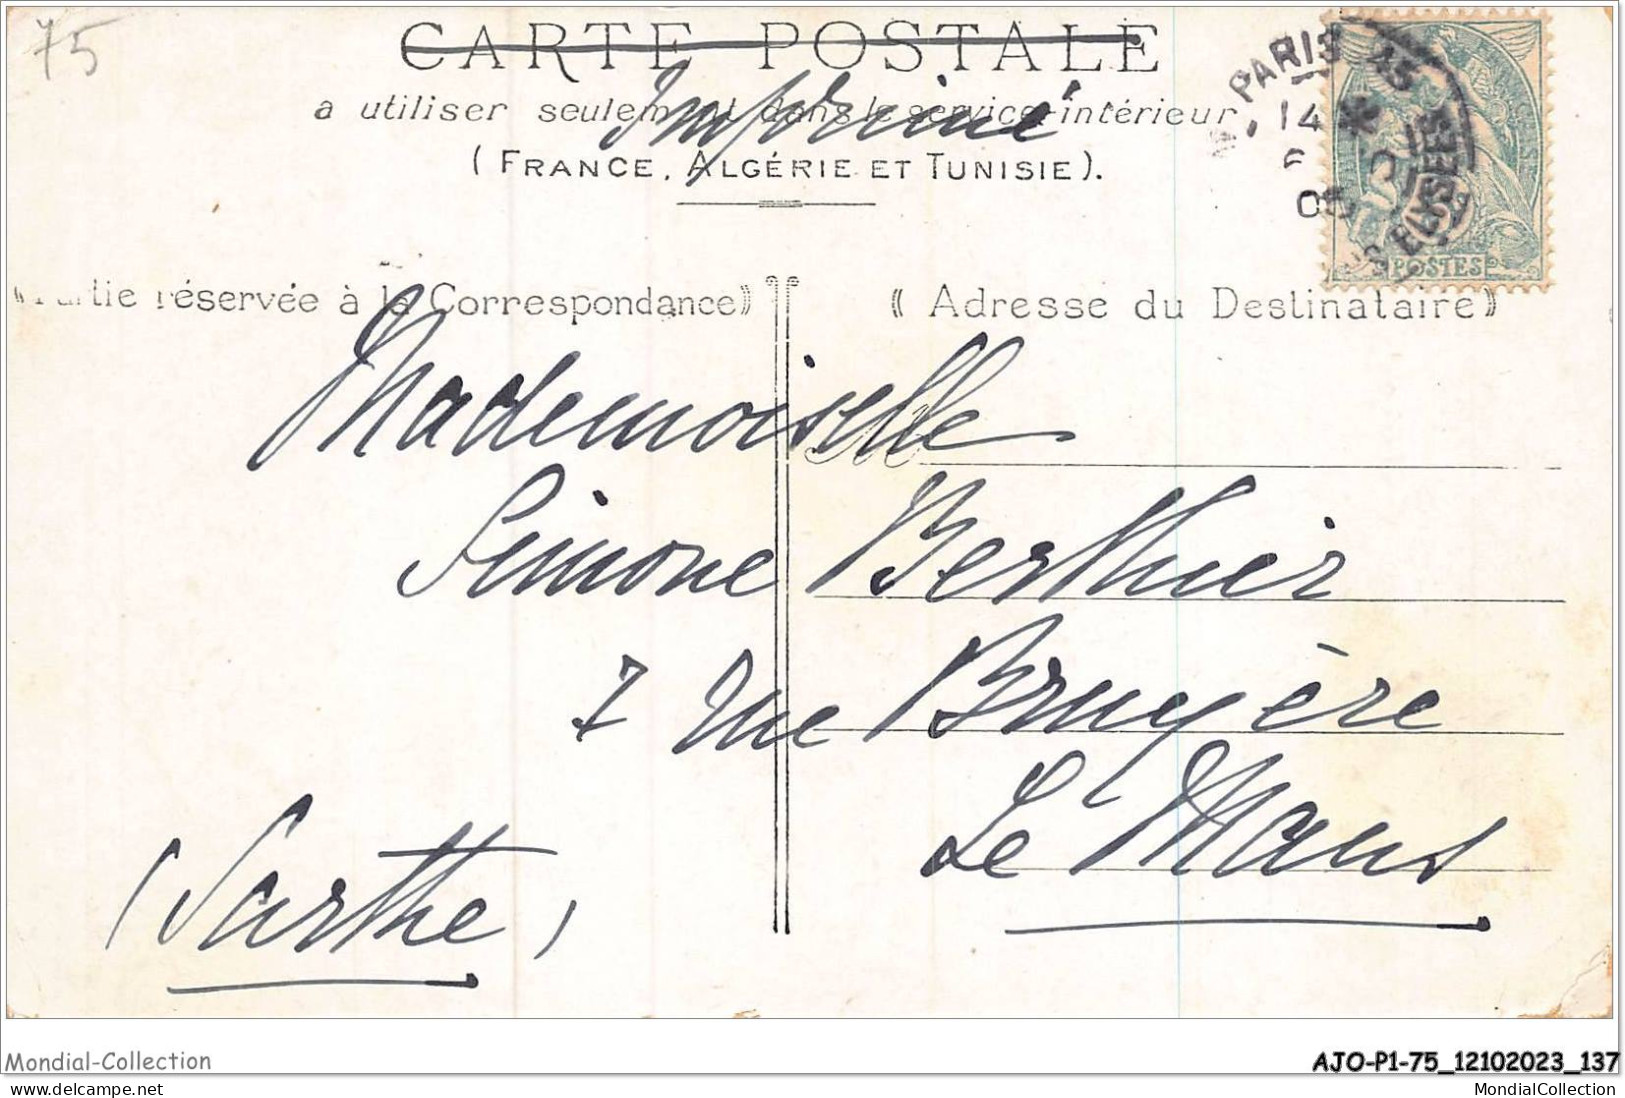 75
CARTE POSTALE
Imprimé
a utiliser seulement dans le service intérieur
(FRANCE, ALGÉRIE ET TUNISIE).
PARIS
14
POSTES
Partie réservée à la Correspondance
Adresse du Destinataire
Mademoiselle
Simone Berthier
7 rue Bruyère
Le Mans
(Sarthe)
Mondial-Collection
AJO-P1-75_12102023_137
delcampe.net
MondialCollection